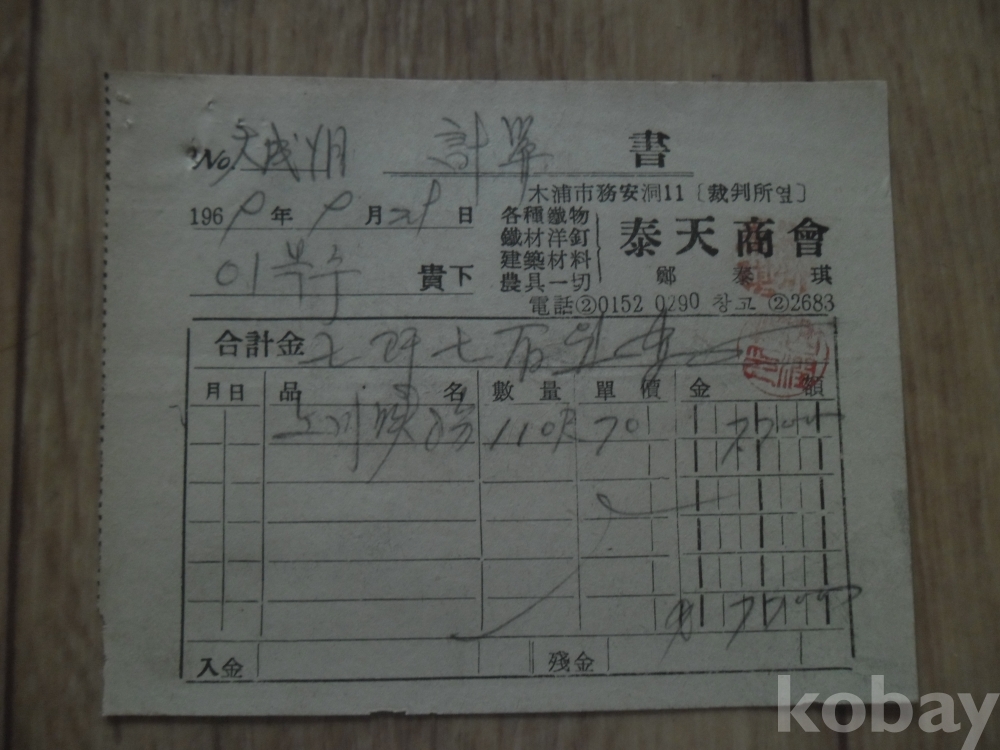 No. 計算書
木浦市務安洞11〔裁判所옆〕
1969年 9月 29日
各種鐵物
鐵材洋釘
建築材料
農具一切
泰天商會
鄭泰琪
貴下
電話②0152 0290 창고 ②2683
合計金 七阡七百
月日 品名 數量 單價 金額
110 70 7700
7700
入金 殘金
kobay